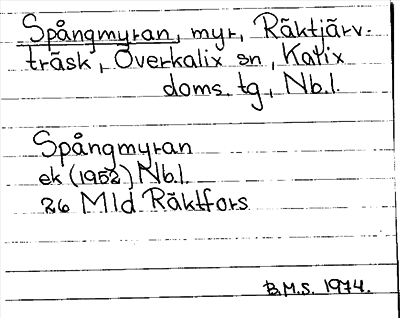 Spångmyran, myr, Räktjärv-
träsk, Överkalix sn, Kalix
doms. tg, Nb.l.
Spångmyran
ek (1952) Nb.l.
26 Mld Räktfors
B.M.S. 1974.